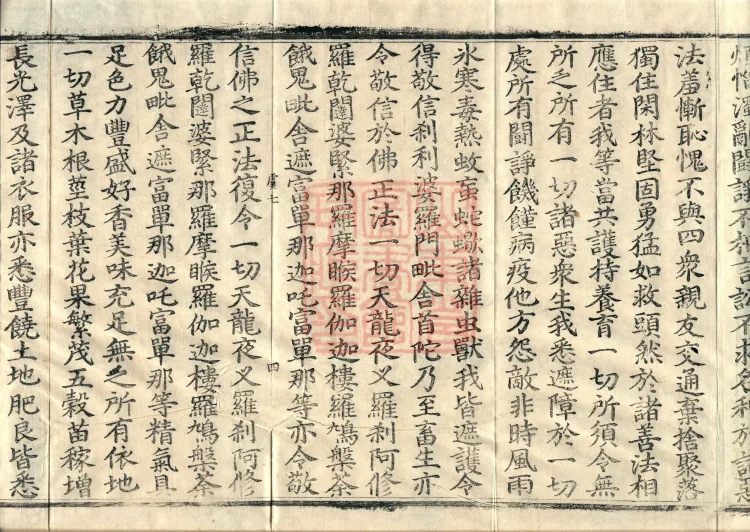 法羞慚恥愧不與四衆親友交通棄捨聚落
獨住閑林堅固勇猛如救頭然於諸善法相
應住者我等當共護持養育一切所須令無
所乏所有一切諸惡衆生我悉遮障於一切
處所有鬪諍飢饉病疫他方怨敵非時風雨
氷寒毒熱蚊䖟蛇蠍諸雜虫獸我皆遮護令
得敬信刹利婆羅門毗舍首陀乃至畜生亦
令敬信於佛正法一切天龍夜叉羅刹阿修
羅乾闥婆緊那羅摩睺羅伽迦樓羅鳩槃荼
餓鬼毗舍遮富單那迦吒富單那等亦令敬
虞七
四
信佛之正法復令一切天龍夜叉羅刹阿修
羅乾闥婆緊那羅摩睺羅伽迦樓羅鳩槃荼
餓鬼毗舍遮富單那迦吒富單那等精氣具
足色力豐盛好香美味充足無乏所有依地
一切草木根莖枝葉花果繁茂五穀苗稼增
長光澤及諸衣服亦悉豐饒土地肥良皆悉